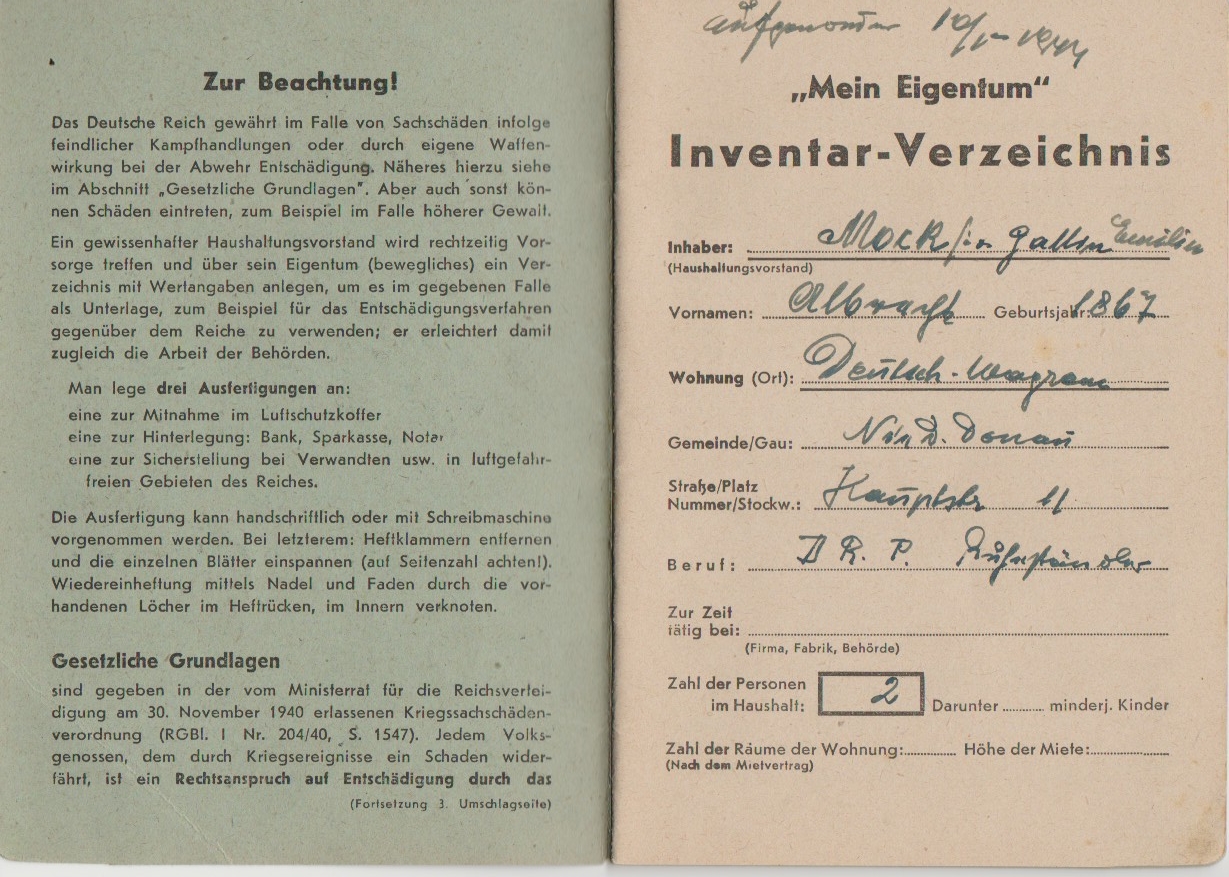 Zur Beachtung!
Das Deutsche Reich gewährt im Falle von Sachschäden infolge
feindlicher Kampfhandlungen oder durch eigene Waffen-
wirkung bei der Abwehr Entschädigung. Näheres hierzu siehe
im Abschnitt „Gesetzliche Grundlagen". Aber auch sonst kön-
nen Schäden eintreten, zum Beispiel im Falle höherer Gewalt.
Ein gewissenhafter Haushaltungsvorstand wird rechtzeitig Vor-
sorge treffen und über sein Eigentum (bewegliches) ein Ver-
zeichnis mit Wertangaben anlegen, um es im gegebenen Falle
als Unterlage, zum Beispiel für das Entschädigungsverfahren
gegenüber dem Reiche zu verwenden; er erleichtert damit
zugleich die Arbeit der Behörden.
Man lege drei Ausfertigungen an:
eine zur Mitnahme im Luftschutzkoffer
eine zur Hinterlegung: Bank, Sparkasse, Notar
eine zur Sicherstellung bei Verwandten usw. in luftgefahr-
freien Gebieten des Reiches.
Die Ausfertigung kann handschriftlich oder mit Schreibmaschine
vorgenommen werden. Bei letzterem: Heftklammern entfernen
und die einzelnen Blätter einspannen (auf Seitenzahl achten!).
Wiedereinheftung mittels Nadel und Faden durch die vor-
handenen Löcher im Heftrücken, im Innern verknoten.
Gesetzliche Grundlagen
sind gegeben in der vom Ministerrat für die Reichsvertei-
digung am 30. November 1940 erlassenen Kriegssachschäden-
verordnung (RGBl. I Nr. 204/40, S. 1547). Jedem Volks-
genossen, dem durch Kriegsereignisse ein Schaden wider-
fährt, ist ein Rechtsanspruch auf Entschädigung durch das
(Fortsetzung 3. Umschlagseite)
1944
„Mein Eigentum“
Inventar-Verzeichnis
Inhaber: Mock Gattin Emilie
(Haushaltungsvorstand)
Vornamen: Albrecht Geburtsjahr: 1867
Wohnung (Ort): Deutsch-Wagram
Gemeinde/Gau: Donau
Straße/Platz
Nummer/Stockw.: Hauptstr 11
Beruf: D R. P.
Zur Zeit
tätig bei:
(Firma, Fabrik, Behörde)
Zahl der Personen
im Haushalt: 2 Darunter minderj. Kinder
Zahl der Räume der Wohnung: Höhe der Miete:
(Nach dem Mietvertrag)